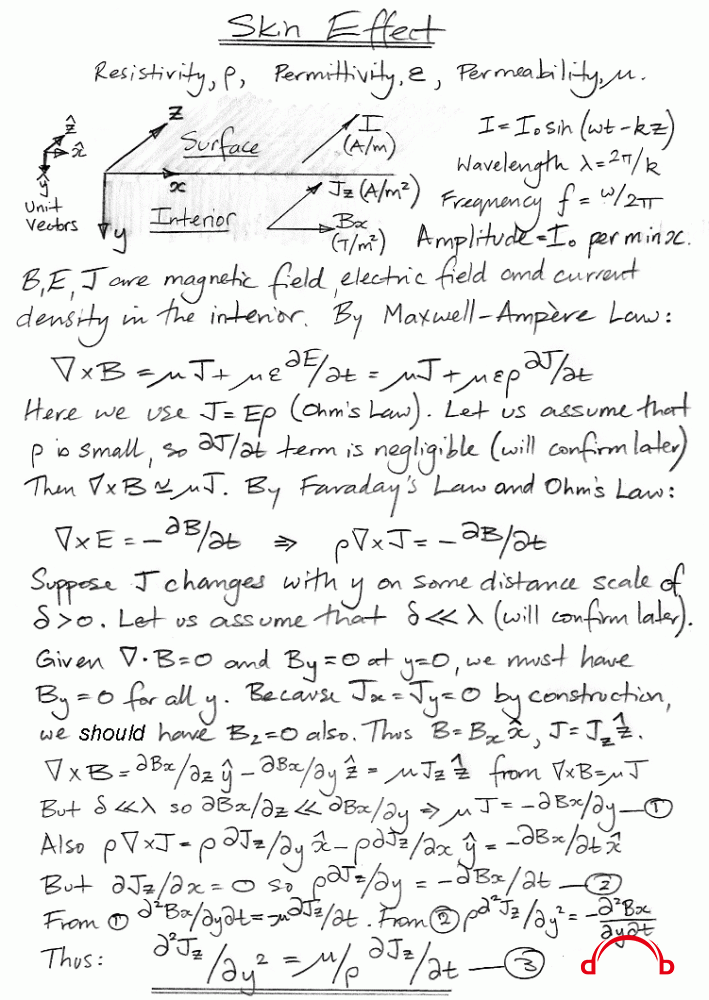 Skin Effect
Resistivity, ρ, Permittivity, ε, Permeability, μ.
ẑ
x̂
ŷ
Unit
Vectors
z
Surface
I
(A/m)
x
Interior
y
Jz (A/m²)
Bx
(T/m²)
I = I₀ sin (wt - kz)
Wavelength λ = 2π/k
Frequency f = w/2π
Amplitude = I₀ per m in x.
B, E, J are magnetic field, electric field and current
density in the interior. By Maxwell-Ampère Law:
∇×B = μJ + με ∂E/∂t = μJ + μερ ∂J/∂t
Here we use J = Eρ (Ohm's Law). Let us assume that
ρ is small, so ∂J/∂t term is negligible (will confirm later)
Then ∇×B ≃ μJ. By Faraday's Law and Ohm's Law:
∇×E = -∂B/∂t ⇒ ρ∇×J = -∂B/∂t
Suppose J changes with y on some distance scale of
δ>0. Let us assume that δ≪λ (will confirm later).
Given ∇·B=0 and By=0 at y=0, we must have
By=0 for all y. Because Jx=Jy=0 by construction,
we should have Bz=0 also. Thus B=Bx x̂, J=Jz ẑ.
∇×B = ∂Bx/∂z ŷ - ∂Bx/∂y ẑ = μJz ẑ from ∇×B=μJ
But δ≪λ so ∂Bx/∂z ≪ ∂Bx/∂y ⇒ μJ = -∂Bx/∂y —①
Also ρ∇×J = ρ ∂Jz/∂y x̂ - ρ ∂Jz/∂x ŷ = -∂Bx/∂t x̂
But ∂Jz/∂x = 0 so ρ ∂Jz/∂y = -∂Bx/∂t —②
From ① ∂²Bx/∂y∂t = -μ ∂Jz/∂t. From ② ρ ∂²Jz/∂y² = -∂²Bx/∂y∂t
Thus: ∂²Jz/∂y² = μ/ρ ∂Jz/∂t —③